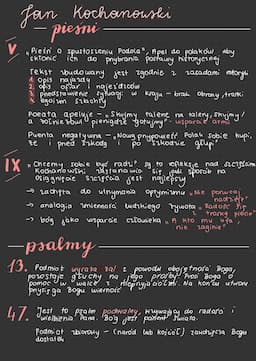 Jan Kochanowski
pieśni
V
"Pieśń o spustoszeniu Podola", Apel do polaków, aby
skłonić ich do przybrania postawy heroicznej
Tekst zbudowany jest zgodnie z zasadami retoryki
1. opis najazdu
2. opis ofiar i najeźdźców
3. przedstawienie sytuacji w kraju - brak obrony, traki
4. bogizm szlachty
Poeta apeluje - "Skujmy talerze na talery, skujmy/
a żołnierzowi pieniądze gotujmy" - wsparcie armii
Puenta negatywna - "Nową przypowieść Polak sobie kupi,
że i przed szkodą i po szkodzie głupi"
IX
"Chcemy sobie być radzi" są to refleksje nad szczęściem
Kochanowski zastanawia się jaki sposób na
osiągnięcie szczęścia jest najlepszy
→ zachęta do utrzymania optymizmu "Nie porzucaj
nadzieje"
→ analogia zmienności ludzkiego żywota "Radość się
z troską plecie"
→ bóg jako wsparcie człowieka "A kto mu ufa,
nie zaginie"
psalmy
13.
Podmiot wyraża żal z powodu obojętności Boga,
pozostaje głuchy na jego prośby. Prosi Boga o
pomoc w walce z nieprzyjaciółmi. Na końcu utworu
przysięga Bogu wierność
47.
Jest to psalm pochwalny, wzywający do radości i
wielbienia Pana. Bóg jest panem świata.
Podmiot zbiorowy - (naród lub kościół) zawdzięcza Bogu